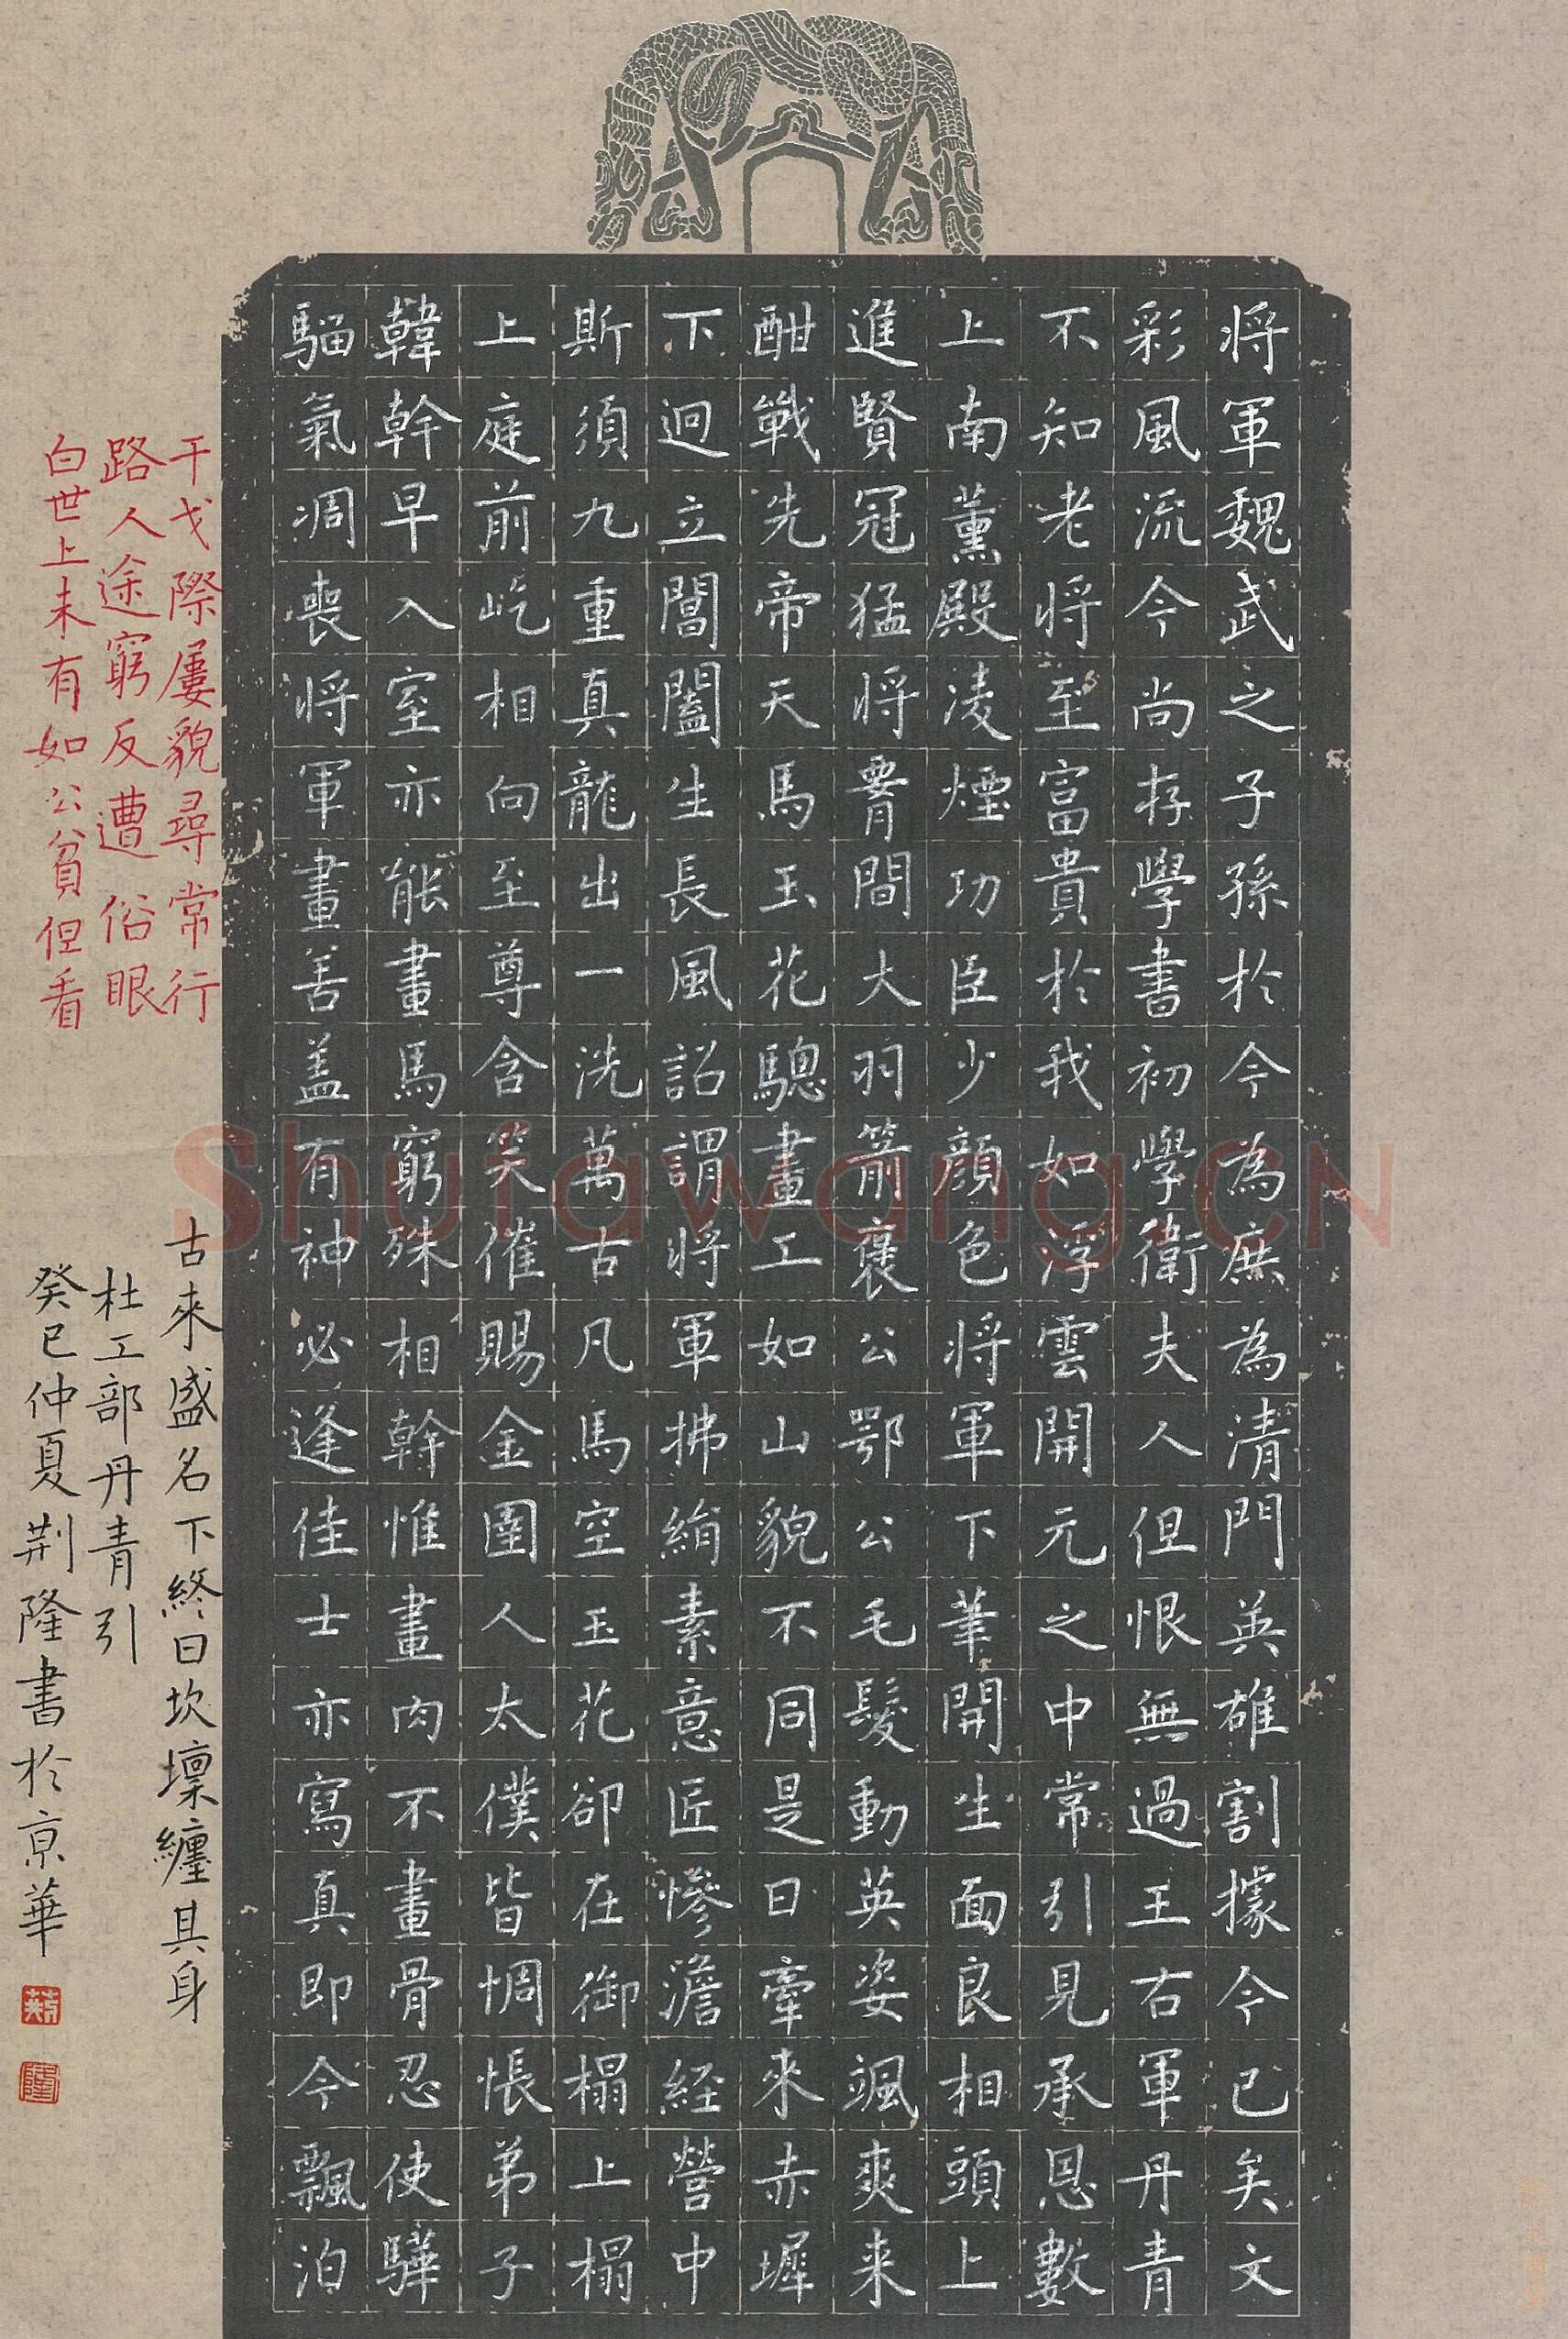 将軍魏武之子孫於今為庶為清門英雄割據今已矣文
彩風流今尚存學書初學衛夫人但恨無過王右軍丹青
不知老将至富貴於我如浮雲開元之中常引見承恩數
上南薰殿凌煙功臣少顔色将軍下筆開生面良相頭上
進賢冠猛将腰間大羽箭褒公鄂公毛髮動英姿颯爽来
酣戰先帝天馬玉花驄畫工如山貌不同是日牽來赤墀
下迥立閶闔生長風詔謂将軍拂絹素意匠慘澹経營中
斯須九重真龍出一洗萬古凡馬空玉花卻在御榻上榻
上庭前屹相向至尊含笑催賜金圉人太僕皆惆悵弟子
韓幹早入室亦能畫馬窮殊相幹惟畫肉不畫骨忍使驊
騮氣凋喪将軍畫善盖有神必逢佳士亦寫真即今飄泊
干戈際屢貌尋常行
路人途窮反遭俗眼
白世上未有如公貧但看
古來盛名下終日坎壈纏其身
杜工部丹青引
癸巳仲夏荆隆書於京華
荆
隆
Shufawang.CN